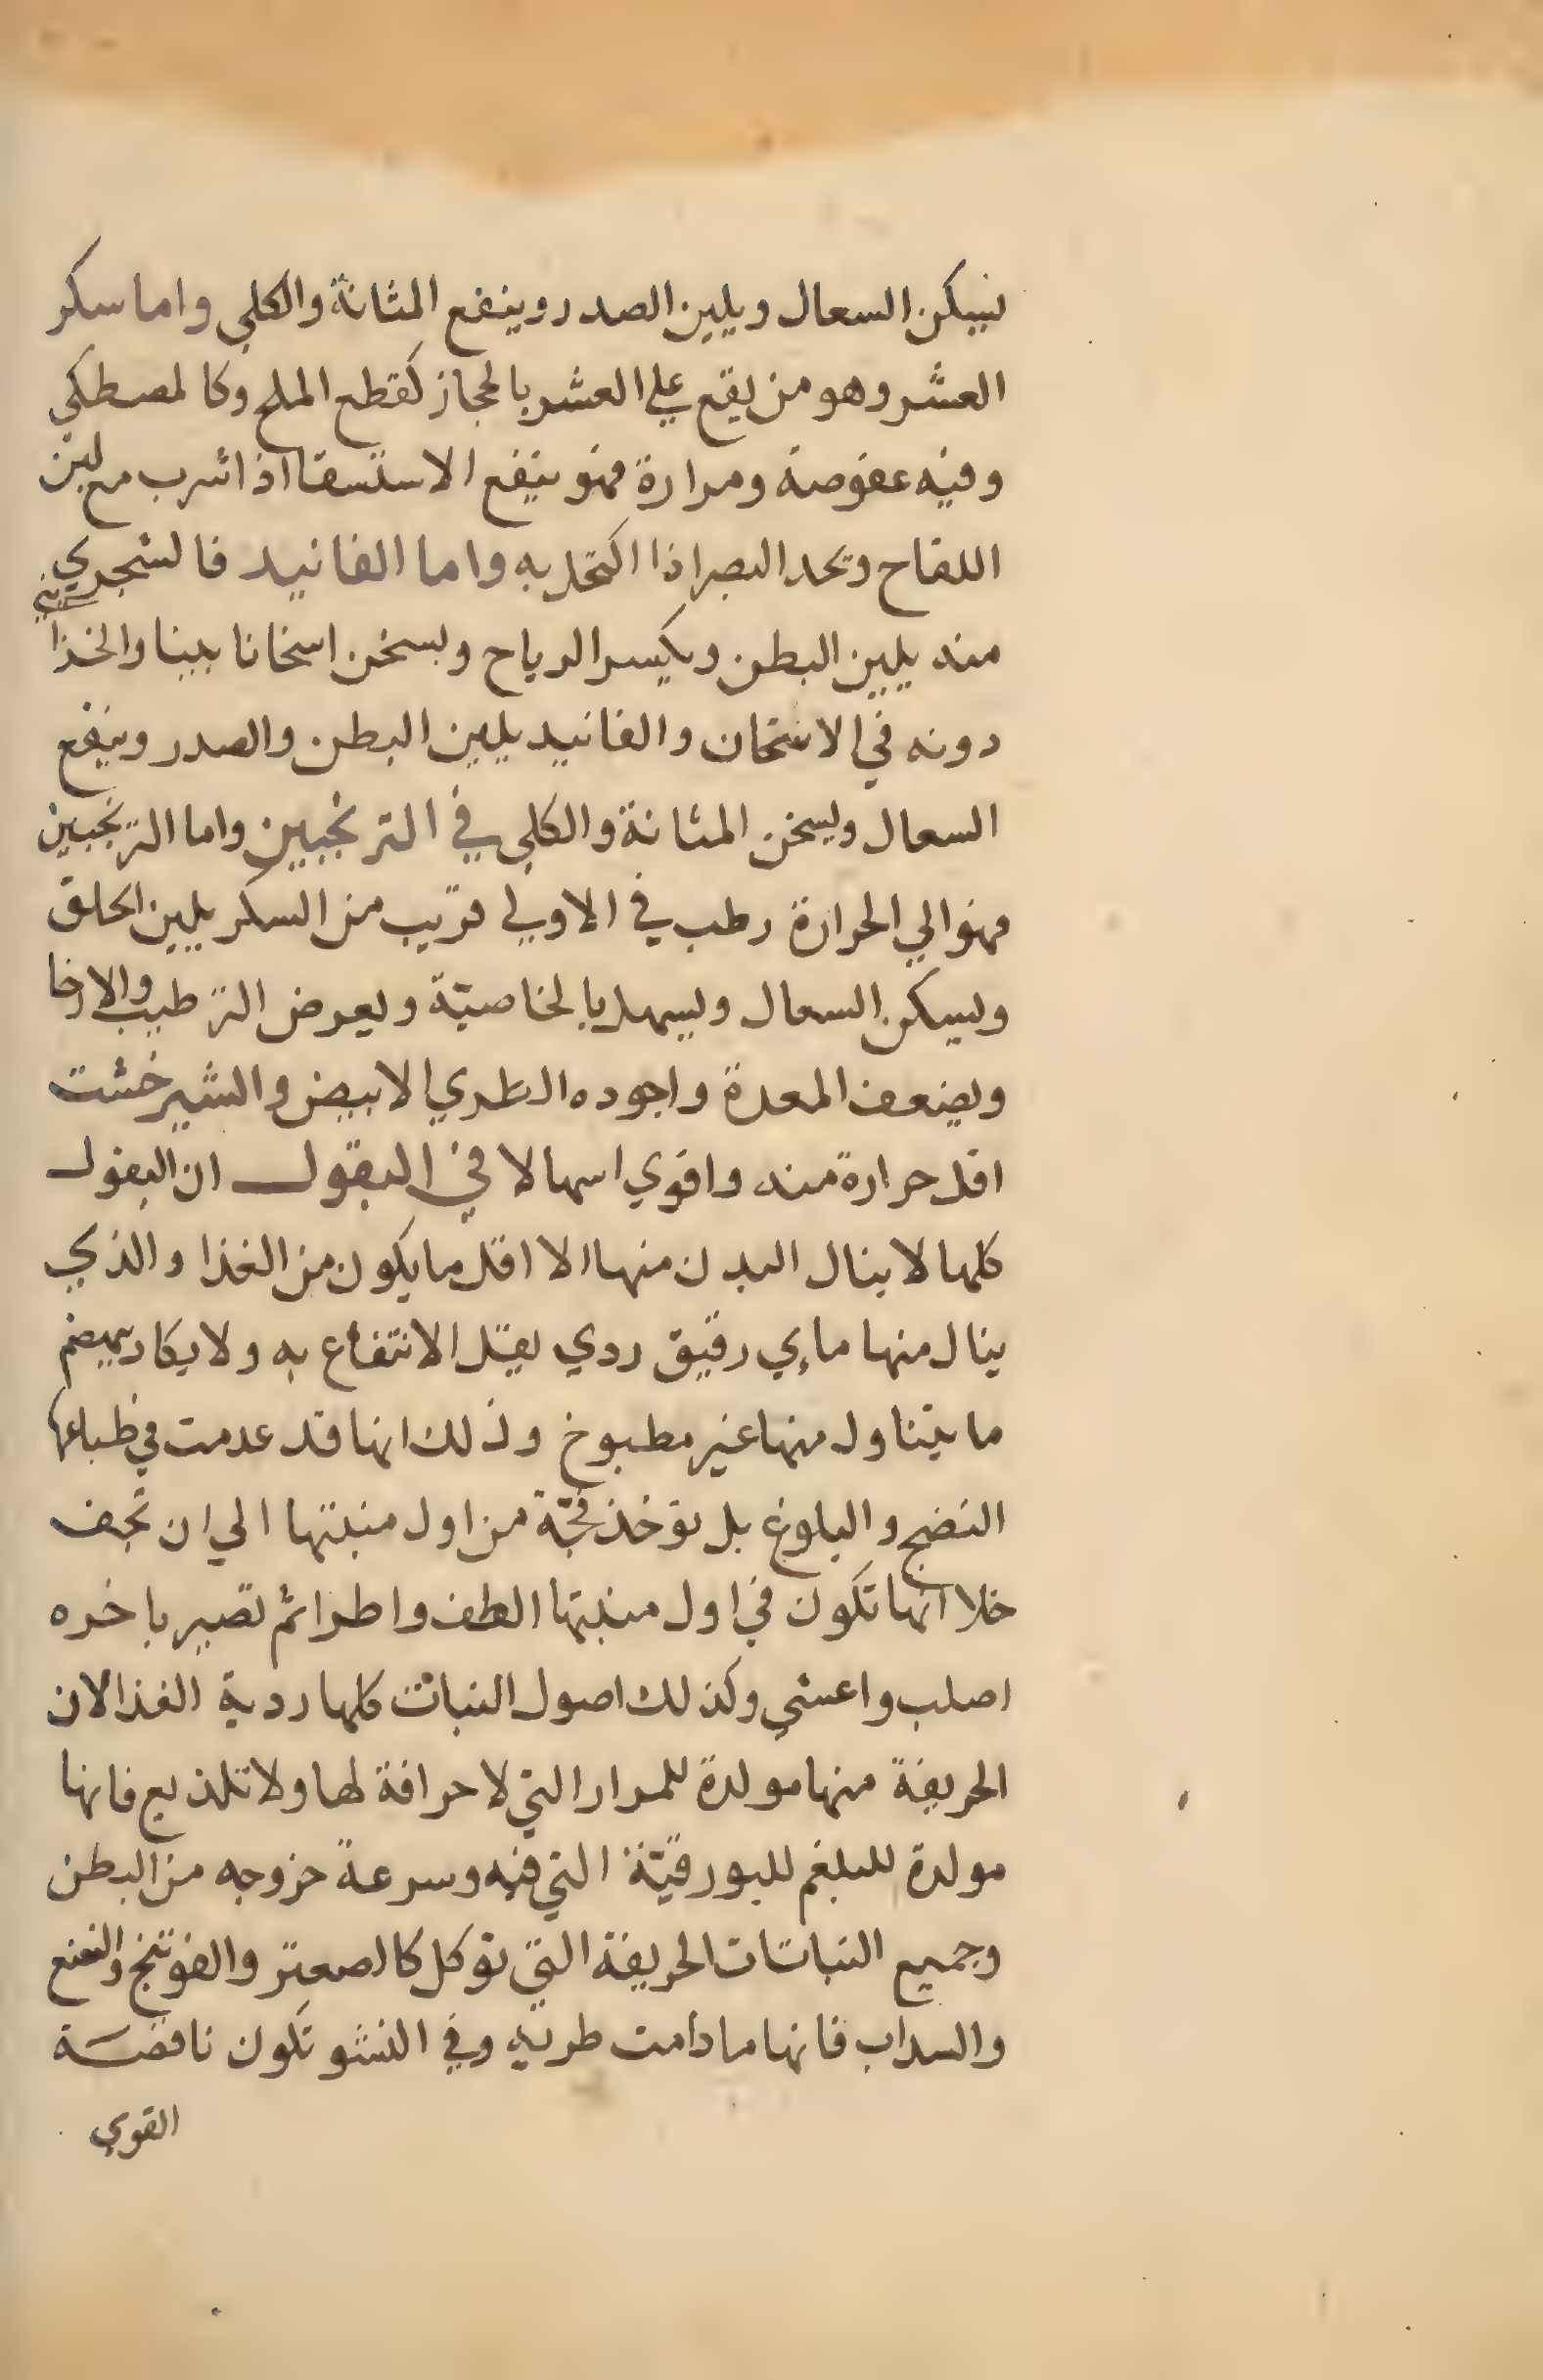 يسكن السعال ويلين الصدر وينفع المثانة والكلي واما سكر
العشر وهو من يقع علي العشر بالحجاز كقطع الملح وكالمصطكي
وفيه عفوصة ومرارة فهو ينفع الاستسقا اذا شرب مع لبن
اللقاح ويحد البصر اذا اكتحل به واما الفانيد فالشجري
منه يلين البطن ويكسر الرياح ويسخن اسخانا بينا والخزا
دونه في الاسخان والفانيد يلين البطن والصدر وينفع
السعال ويسخن المثانة والكلي في الترنجبين واما الترنجبين
فهو الي الحرارة رطب في الاولي قريب من السكر يلين الحلق
ويسكن السعال ويسهل بالخاصيّة ويعرض الترطيب والارخا
ويضعف المعدة واجوده الطري الابيض والشيرخشت
اقل حرارة منه واقوي اسهالا في البقول ان البقول
كلها لا ينال البدن منها الا اقل ما يكون من الغذا والذي
ينال منها مايي رقيق ردي يقل الانتفاع به ولا يكاد يهضم
ما يتناول منها غير مطبوخ وذلك انها قد عدمت في طباعها
النضج والبلوغ بل توخذ فجّة من اول منبتها الي ان تجف
خلا انها تكون في اول منبتها الطف واطرا ثم تصير باخره
اصلب واعشي وكذلك اصول النبات كلها ردية الغذا لان
الحريفة منها مولدة للمرار التي لا حرافة لها ولا تلذيع فانها
مولدة للبلغم للبورقيّة التي فيه وسرعة خروجه من البطن
وجميع النباتات الحريفة التي توكل كالصعتر والفوتنج والنعنع
والسداب فانها ما دامت طريه وفي النشو تكون ناقصة
القوي